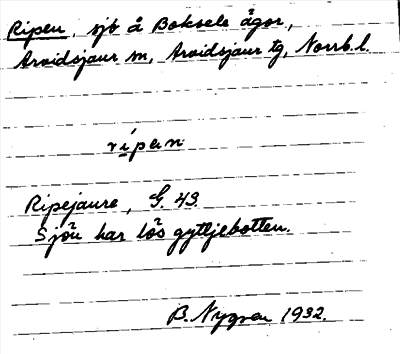 Ripen, sjö å Boksels ägor,
Arvidsjaur sn, Arvidsjaur tg, Norrb. l.
rípan
Ripejaure, G. 43.
Sjön har lös gyttjebotten.
B. Nygren 1932.